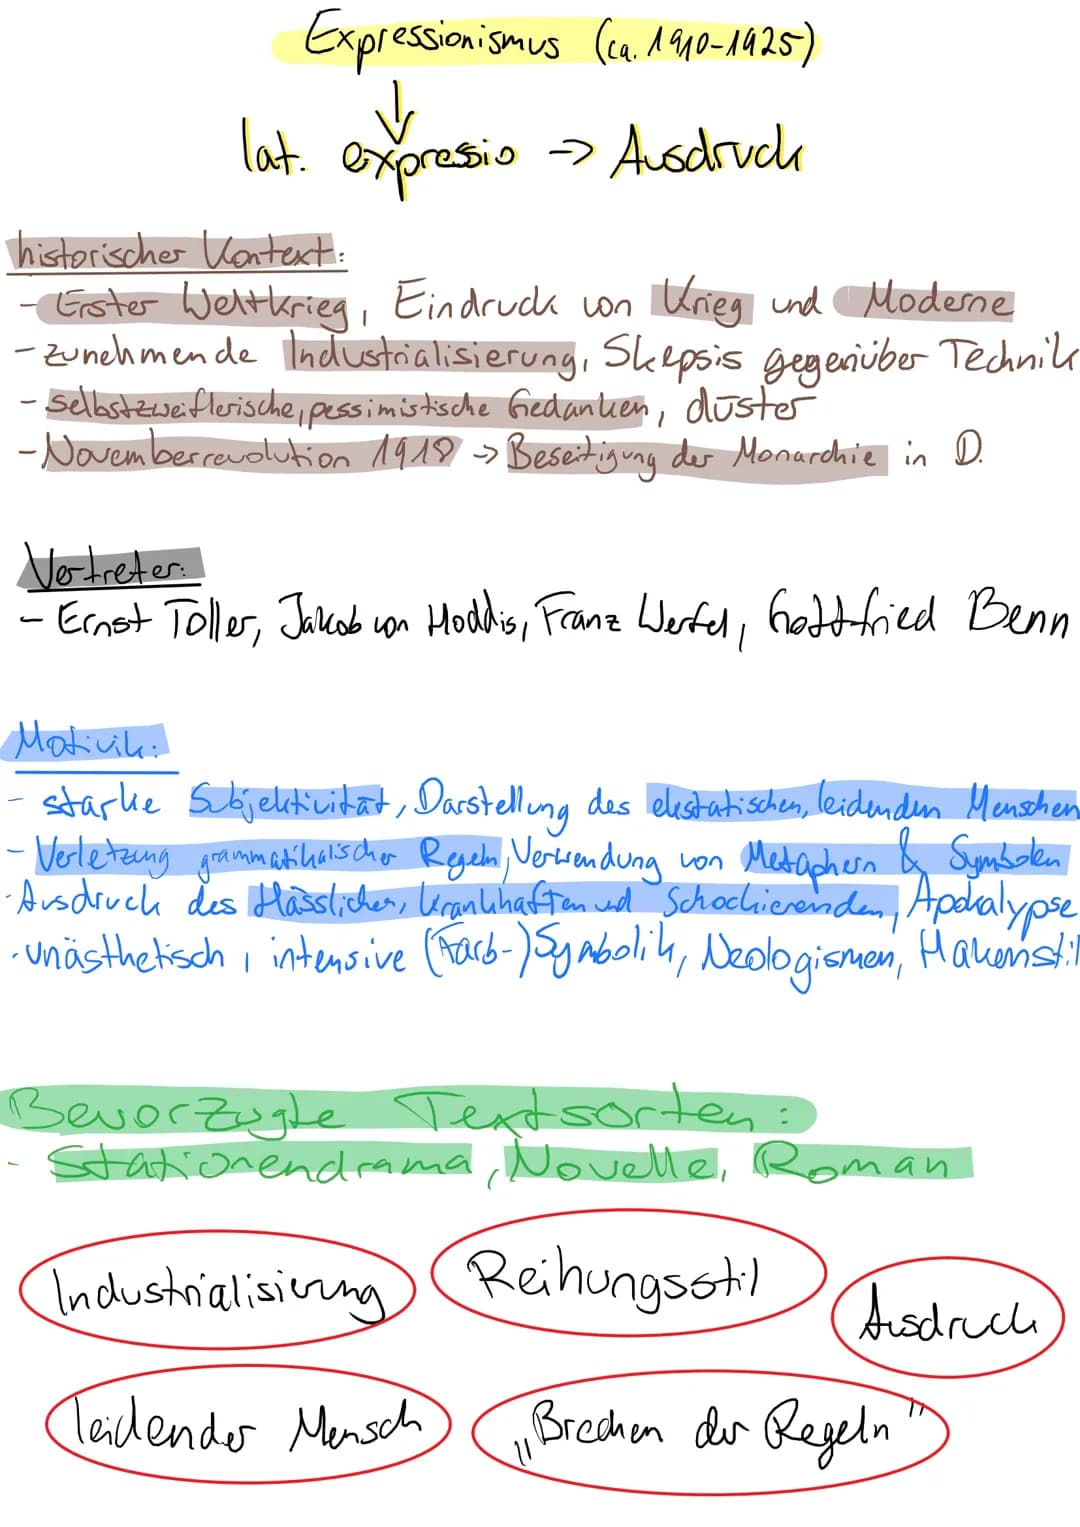 Expressionismus (ca. 1910-1925)
lat. expressio → Ausdruck
historischer Kontext:
- Erster Weltkrieg, Eindruck von Krieg und Moderne
- zunehmende Industrialisierung, Skepsis gegenüber Technik
- selbstzweiflerische, pessimistische Gedanken, düster
- Novemberrevolution 1918 → Beseitigung der Monarchie in D.
Vertreter:
- Ernst Toller, Jakob von Hoddis, Franz Werfel, Gottfried Benn
Motivik:
- starke Subjektivität, Darstellung des ekstatischen, leidenden Menschen
- Verletzung grammatikalischer Regeln, Verwendung von Metaphern & Symbolen
- Ausdruck des Hässlichen, Krankhaften und Schockierenden, Apokalypse
- unästhetisch, intensive (Farb-)Symbolik, Neologismen, Hakenstil
Bevorzugte Textsorten:
- Stationendrama, Novelle, Roman
Industrialisierung
Reihungsstil
Ausdruck
leidender Mensch
„Brechen der Regeln"